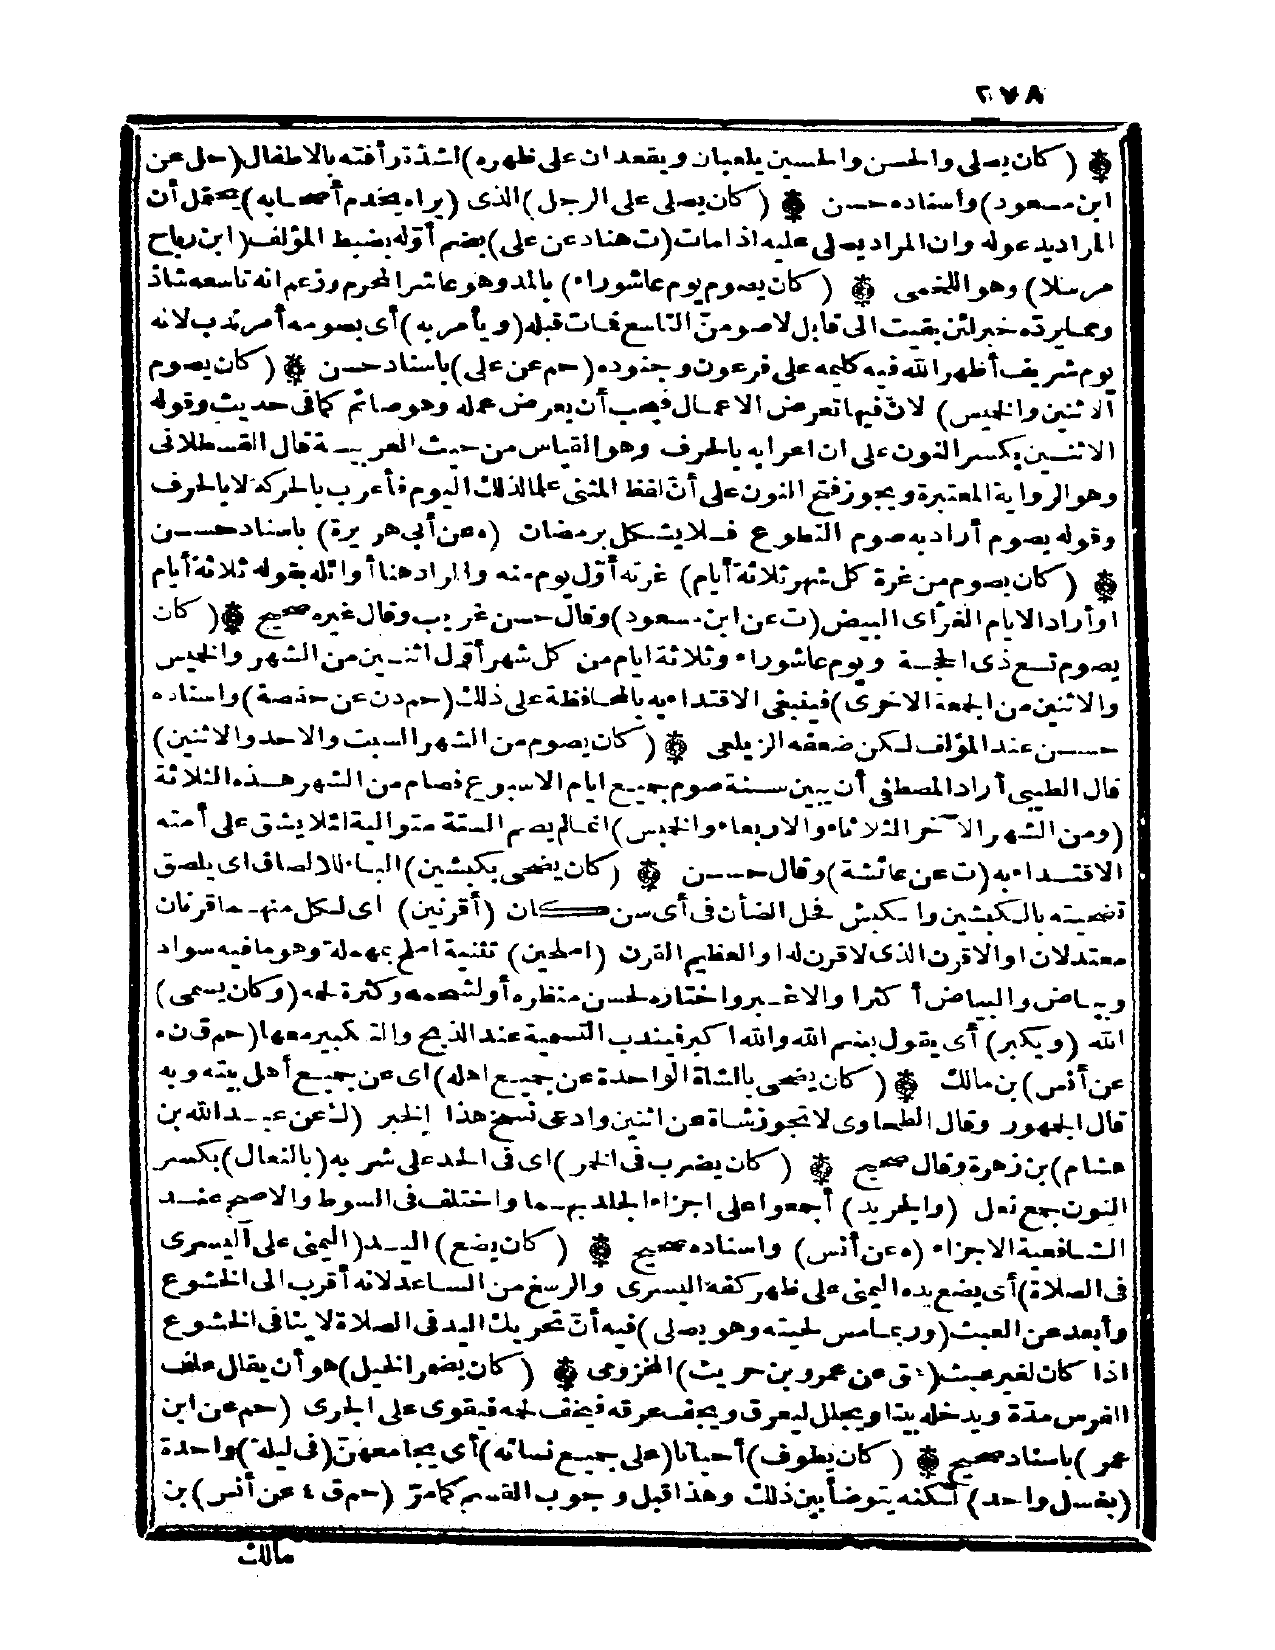 ٢٧٨
(كان يصلى والحسن والحسين يلعبان ويقعدان على ظهره) لشدّة رأفته بالاطفال (حل عن
ابن مسعود) واسناده حسن (كان يصلى على الرجل) الذى (يراه يخدم أصحابه) يحتمل أن
المراد يدعو له وان المراد يصلى عليه اذا مات (ت هناد عن على) بضم أوّله بضبط المؤلف (ابن رباح
مرسلا) وهو اللخمى (كان يصوم يوم عاشوراء) بالمد وهو عاشر المحرم وزعم انه تاسعه شاذ
ومما يردّه خبر لئن بقيت الى قابل لاصومنّ التاسع فمات قبله (ويأمر به) أى بصومه أمر ندب لانه
يوم شريف أظهر الله فيه كليمه على فرعون وجنوده (حم عن على) باسناد حسن (كان يصوم
الاثنين والخميس) لانّ فيها تعرض الاعمال فيحب أن يعرض عمله وهو صائم كما فى حديث وقوله
الاثنين بكسر النون على ان اعرابه بالحرف وهو القياس من حيث العربية قال القسطلانى
وهو الرواية المعتبرة ويجوز فتح النون على أنّ لفظ المثنى علم لذلك اليوم فأعرب بالحركة لا بالحرف
وقوله يصوم أراد به صوم التطوع فلا يشكل برمضان (ه عن أبى هريرة) باسناد حسن
(كان يصوم من غرة كل شهر ثلاثة أيام) غرته أوّل يوم منه والمراد هنا أوائله بقوله ثلاثة أيام
أو أراد الايام الغرّ أى البيض (ت عن ابن مسعود) وقال حسن غريب وقال غيره صحيح (كان
يصوم تسع ذى الحجة ويوم عاشوراء وثلاثة ايام من كل شهر أوّل اثنين من الشهر والخميس
والاثنين من الجمعة الاخرى) فينبغى الاقتداء به بالمحافظة على ذلك (حم د ن عن حفصة) واسناده
حسن عند المؤلف لكن ضعفه الزيلعى (كان يصوم من الشهر السبت والاحد والاثنين)
قال الطيبى أراد المصطفى أن يبين سنة صوم جميع ايام الاسبوع فصام من الشهر هذه الثلاثة
(ومن الشهر الآخر الثلاثاء والاربعاء والخميس) انما لم يصم الستة متوالية لئلا يشق على أمته
الاقتداء به (ت عن عائشة) وقال حسن (كان يضحى بكبشين) الباء للالصاق اى يلصق
تضحيته بالكبشين والكبش فحل الضأن فى أى سن كان (أقرنين) اى لكل منهما قرنان
معتدلان او الاقرن الذى لا قرن له او العظيم القرن (املحين) تثنية املح بمهملة وهو ما فيه سواد
وبياض والبياض أكثر او الاغبر واختاره لحسن منظره أو لشحمه وكثرة لحمه (وكان يسمى)
الله (ويكبر) أى يقول بسم الله والله اكبر فيندب التسمية عند الذبح والتكبير معها (حم ق ن ه
عن أنس) بن مالك (كان يضحى بالشاة الواحدة عن جميع اهله) اى عن جميع أهل بيته وبه
قال الجمهور وقال الطحاوى لا تجوز شاة عن اثنين وادعى نسخ هذا الخبر (ك عن عبد الله بن
هشام) بن زهرة وقال صحيح (كان يضرب فى الخمر) اى فى الحد على شربه (بالنعال) بكسر
النون جمع نعل (والجريد) أجمعوا على اجزاء الجلد بهما واختلف فى السوط والاصح عند
الشافعية الاجزاء (ه عن أنس) واسناده صحيح (كان يضع) اليد (اليمنى على اليسرى
فى الصلاة) أى يضع يده اليمنى على ظهر كفه اليسرى والرسغ من الساعد لانه أقرب الى الخشوع
وأبعد عن العبث (وربما مس لحيته وهو يصلى) فيه أنّ تحريك اليد فى الصلاة لا ينافى الخشوع
اذا كان لغير عبث (هق عن عمرو بن حريث) المخزومى (كان يضمر الخيل) هو أن يقال علف
الفرس مدّة ويدخله بيتا ويجلل ليعرق ويجف عرقه فيخف لحمه فيقوى على الجرى (حم عن ابن
عمر) باسناد صحيح (كان يطوف) أحيانا (على جميع نسائه) أى يجامعهنّ (فى ليلة) واحدة
(بغسل واحد) لكنه يتوضأ بين ذلك وهذا قبل وجوب القسم كما مرّ (حم ق ٤ عن أنس) بن
مالك